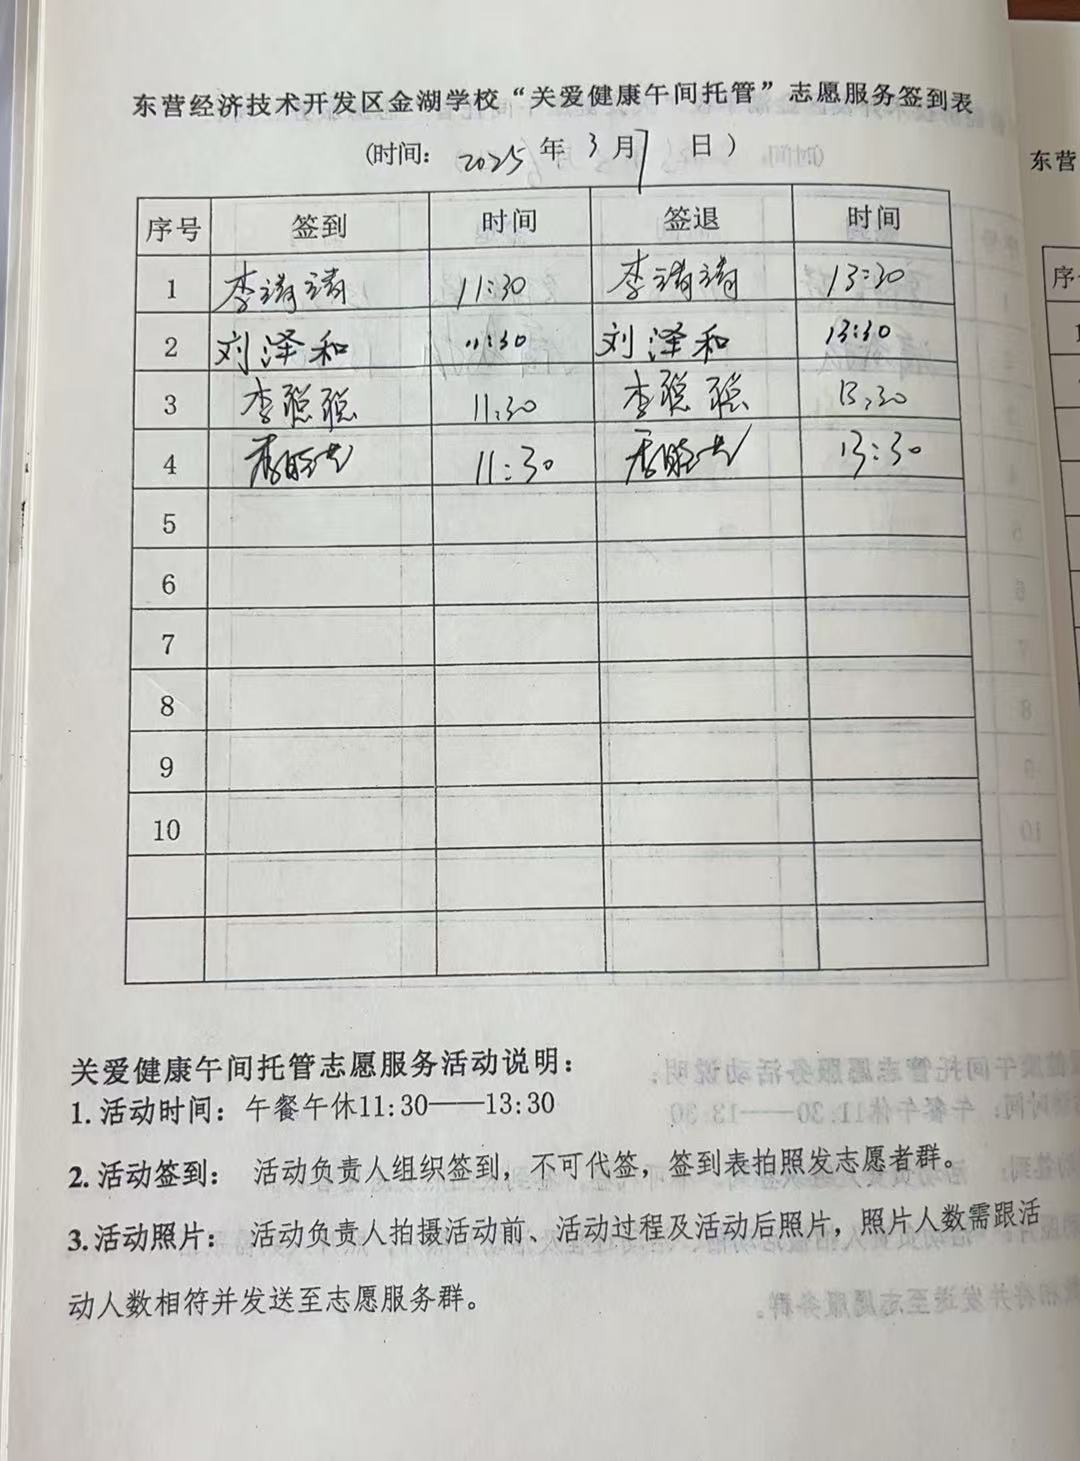 东营经济技术开发区金湖学校“关爱健康午间托管”志愿服务签到表
(时间: 2025 年 3 月 7 日)
序号 签到 时间 签退 时间
1 李靖靖 11:30 李靖靖 13:30
2 刘泽和 11:30 刘泽和 13:30
3 李聪聪 11:30 李聪聪 13:30
4 11:30 13:30
5
6
7
8
9
10
关爱健康午间托管志愿服务活动说明：
1. 活动时间：午餐午休11:30——13:30
2. 活动签到： 活动负责人组织签到，不可代签，签到表拍照发志愿者群。
3. 活动照片： 活动负责人拍摄活动前、活动过程及活动后照片，照片人数需跟活
动人数相符并发送至志愿服务群。
东营
序
1